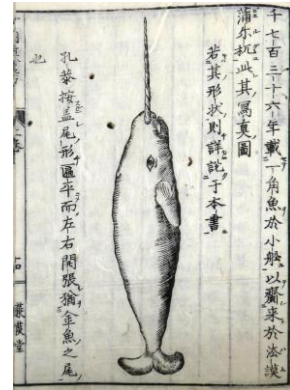 千七百三十六年載一角魚於小船以齎来於法謨
蒲尓杌此其寫真圖
若其形状則詳説于本書
孔恭按蓋尾形匾平而左右開張猶金魚之尾
也
蒹葭堂